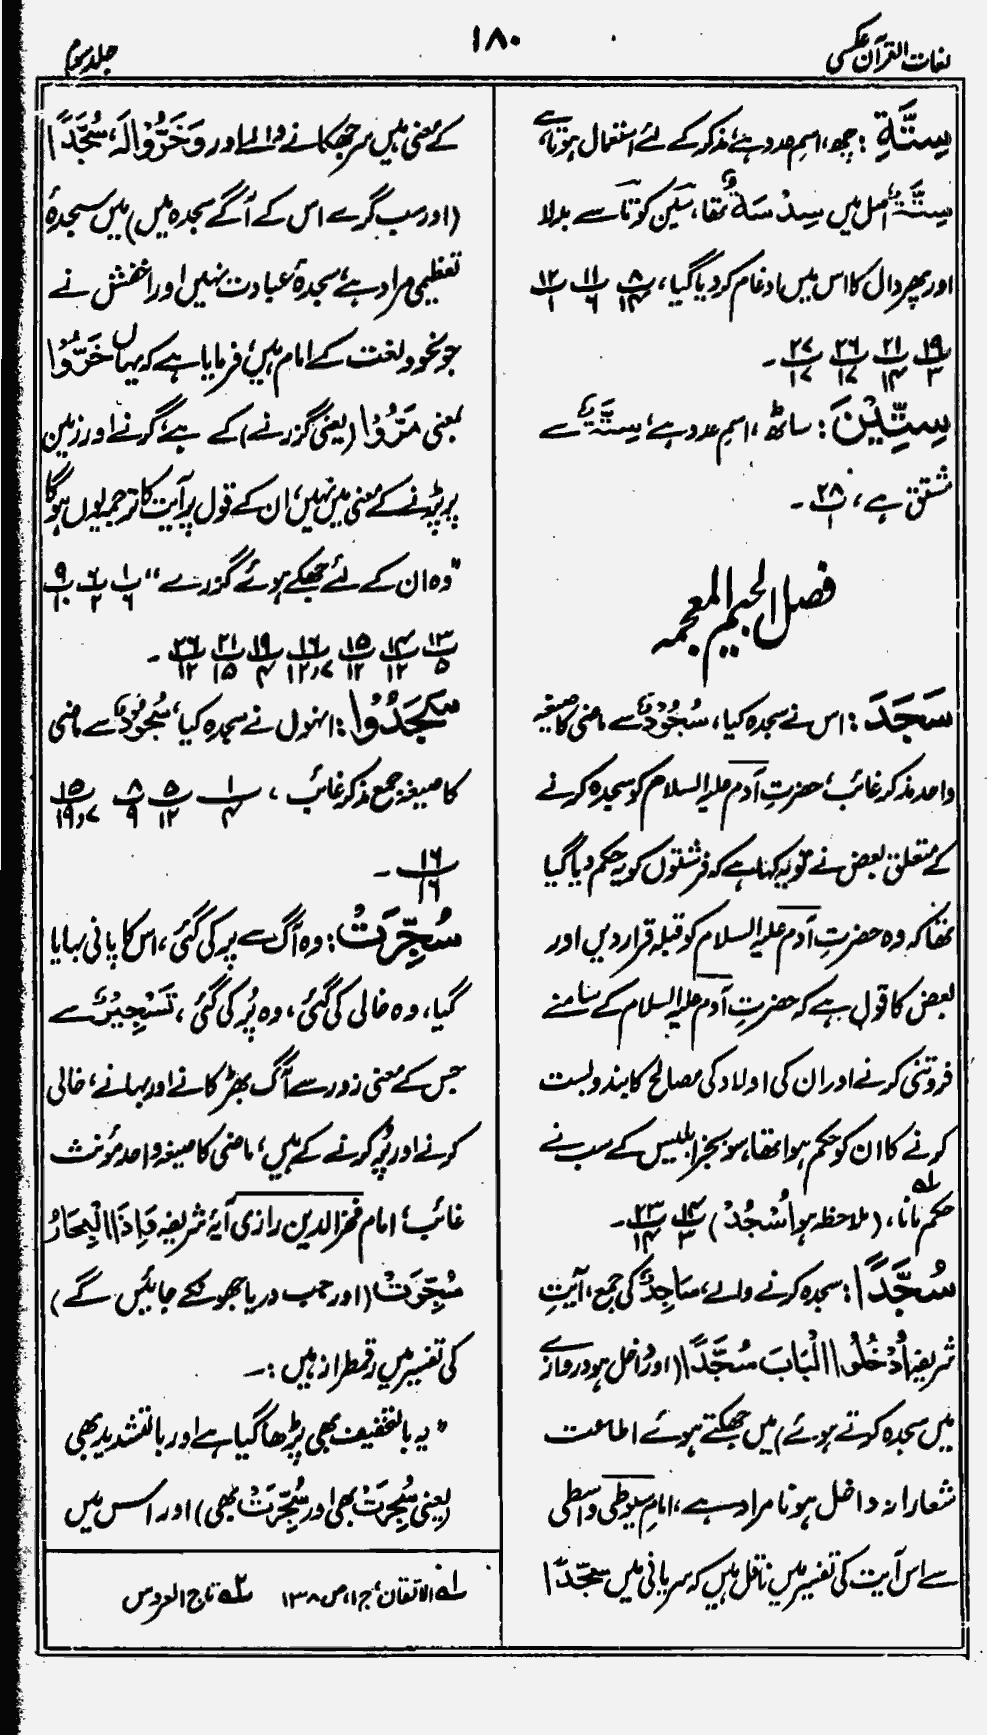 لغات القرآن عکسی
۱۸۰
جلد سوم
سِتَّةِ : چھ، اسمِ عدد ہے، مذکر کے لئے استعمال ہوتا ہے،
سِتَّةٌ اصل میں سِدْسَةٌ تھا، سین کو تا سے بدلا
اور پھر دال کا اس میں ادغام کر دیا گیا، ۸/۱۴ ۱۱/۶ ۱۲/۱
۱۹/۳ ۲۱/۱۴ ۲۶/۱۷ ۲۷/۱۷ ۔
سِتِّیْنَ : ساٹھ، اسمِ عدد ہے، سِتَّةٌ سے
مشتق ہے، ۲۸/۱ ۔
فصل الجیم المعجمہ
سَجَدَ : اس نے سجدہ کیا، سُجُوْدٌ سے ماضی کا صیغہ
واحد مذکر غائب، حضرتِ آدم علیہ السلام کو سجدہ کرنے
کے متعلق بعض نے تو یہ کہا ہے کہ فرشتوں کو یہ حکم دیا گیا
تھا کہ وہ حضرتِ آدم علیہ السلام کو قبلہ قرار دیں اور
بعض کا قول ہے کہ حضرتِ آدم علیہ السلام کے سامنے
فروتنی کرنے اور ان کی اولاد کی مصالح کا بند و بست
کرنے کا ان کو حکم ہوا تھا، سو بجز ابلیس کے سب نے
حکم مانا، (ملاحظہ ہو اُسْجُدْ) ۱۴/۳ ۲۳/۱۴ ۔
سُجَّدًا : سجدہ کرنے والے، سَاجِدٌ کی جمع، آیتِ
شریفہ اُدْخُلُوا الْبَابَ سُجَّدًا (اور داخل ہو دروازے
میں سجدہ کرتے ہوئے) میں جھکتے ہوئے اطاعت
شعارانہ داخل ہونا مراد ہے، امام سیوطی واسطی
سے اس آیت کی تفسیر میں ناقل ہیں کہ سریانی میں سجّدًا
کے معنی ہیں سر جھکانے والے اور وَخَرُّوْا لَہٗ سُجَّدًا
(اور سب گرے اس کے آگے سجدہ میں) میں سجدۂ
تعظیمی مراد ہے، سجدۂ عبادت نہیں اور اخفش نے
جو نحو و لغت کے امام ہیں، فرمایا ہے کہ یہاں خَرُّوْا
بمعنی مَرُّوْا (یعنی گزرنے) کے ہے، گرنے اور زمین
پر پڑنے کے معنی میں نہیں، ان کے قول پر آیت کا ترجمہ یوں ہوگا
"وہ ان کے لئے جھکے ہوئے گزرے" ۱/۶ ۶/۲ ۹/۱۰
۱۳/۵ ۱۴/۱۲ ۱۵/۱۲ ۱۶/۷و۱۲ ۱۹/۴ ۲۱/۱۵ ۲۶/۱۲ ۔
سَجَدُوْا : انہوں نے سجدہ کیا، سُجُوْدٌ سے ماضی
کا صیغہ جمع مذکر غائب ، ۱/۴ ۵/۱۲ ۸/۹ ۱۵/۷و۱۹
۱۶/۱۶ ۔
سُجِّرَتْ : وہ آگ سے پر کی گئی، اس کا پانی بہایا
گیا، وہ خالی کی گئی، وہ پُر کی گئی، تَسْجِیْرٌ سے
جس کے معنی زور سے آگ بھڑکانے اور بہانے، خالی
کرنے اور پُر کرنے کے ہیں، ماضی کا صیغہ واحد مؤنث
غائب، امام فخر الدین رازی آیۂ شریفہ وَاِذَا الْبِحَارُ
سُجِّرَتْ (اور جب دریا جھونکے جائیں گے)
کی تفسیر میں رقمطراز ہیں :۔
" یہ بالتخفیف بھی پڑھا گیا ہے اور بالتشدید بھی
(یعنی سُجِرَتْ بھی اور سُجِّرَتْ بھی) اور اس میں
لہ الاتقان، ج ۱، ص ۱۳۸ ۲ہ تاج العروس